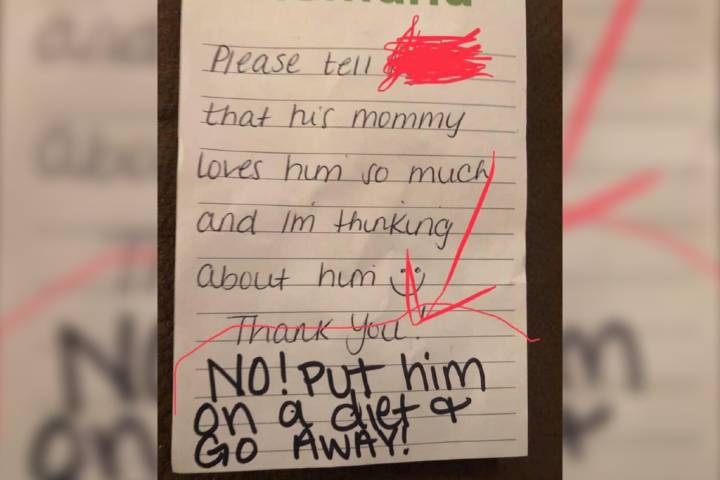 Please tell
that his mommy
loves him so much
and Im thinking
about him
Thank You!
NO! Put him
on a diet &
GO AWAY!